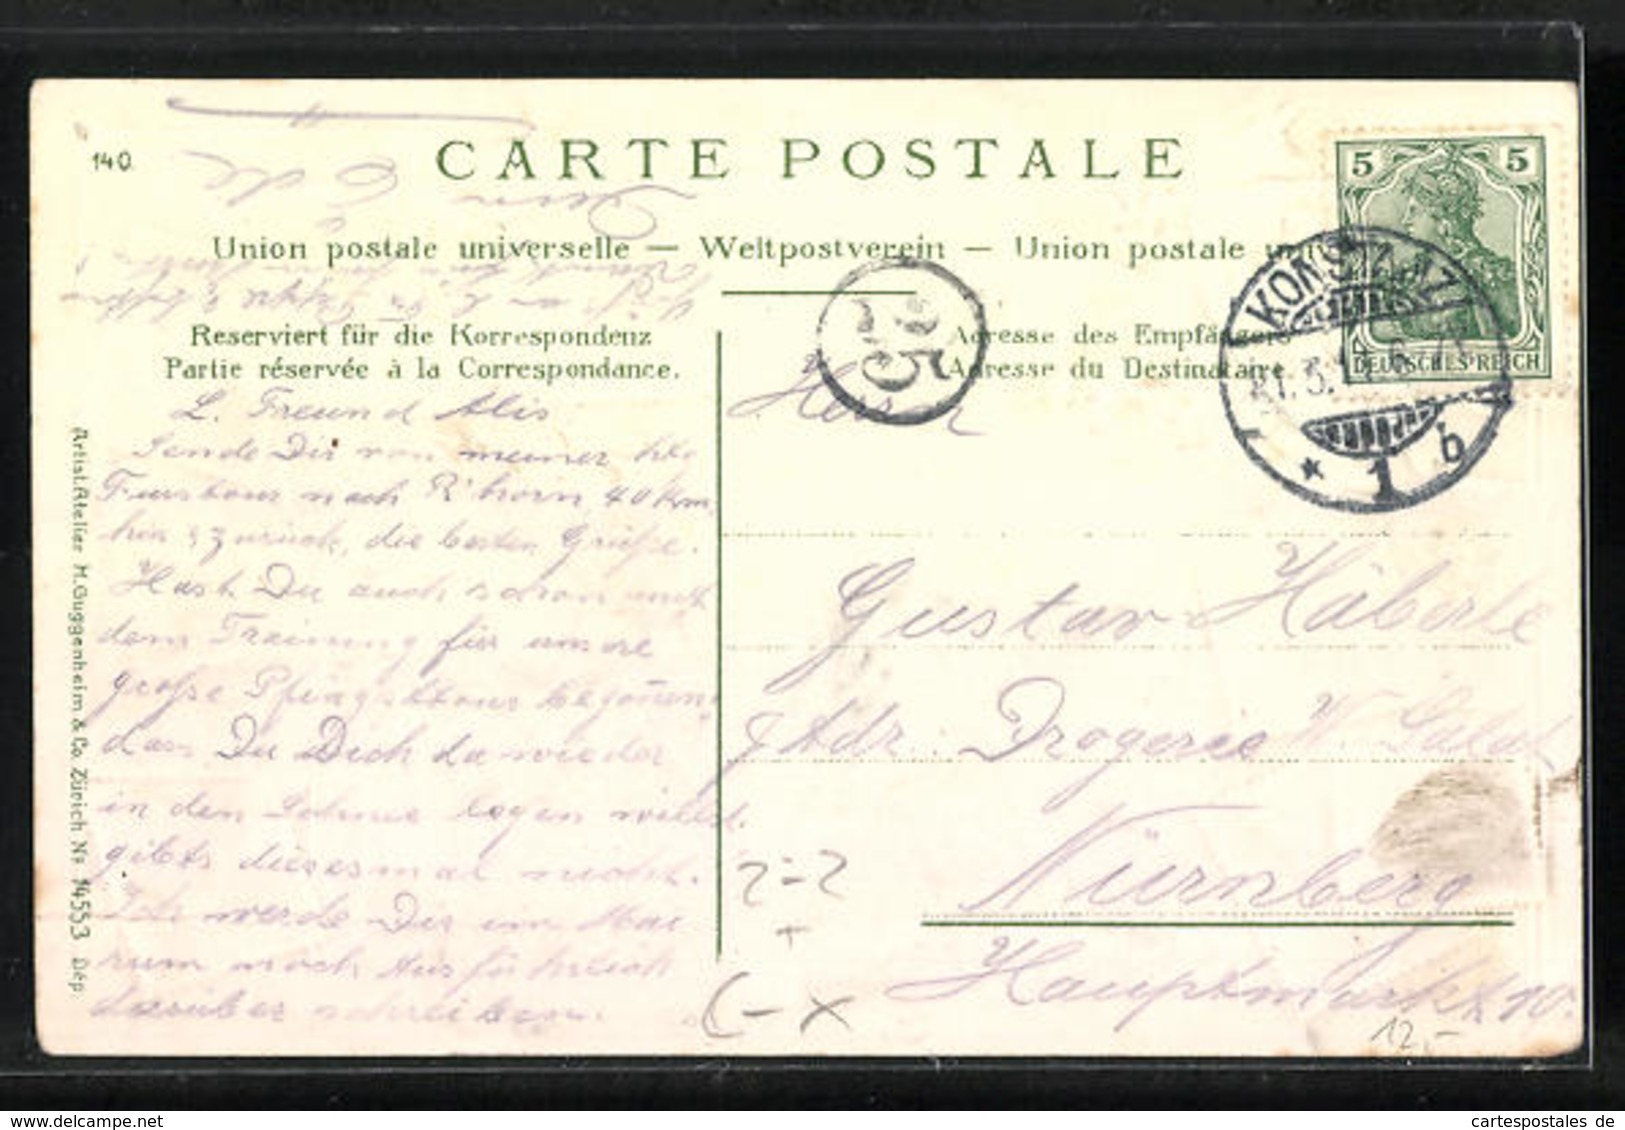 140.
CARTE POSTALE
Union postale universelle — Weltpostverein — Union postale
Reserviert für die Korrespondenz
Partie réservée à la Correspondance.
Adresse des Empfängers
Adresse du Destinataire
5 5
DEUTSCHES REICH
KONSTANZ
* 1 b
L. Freund Alis
Sende Dir von meiner
nach R'horn 40 Km
hin & zurück, die besten Grüße.
Hast Du auch schon mit
dem Training für unsre
große Pfingsttour begonnen,
dass Du Dich da wieder
in den legen willst.
gibts diesesmal nicht.
Ich werde Dir im
noch ausführlich
darüber schreiben.
Herrn
Gustav Häberle
Adr. Drogerie W.
Nürnberg
Hauptmarkt 10.
12,-
Artist. Atelier H. Guggenheim & Co. Zürich No 14553 Dép.
cartespostales de
www.cartespostales.de